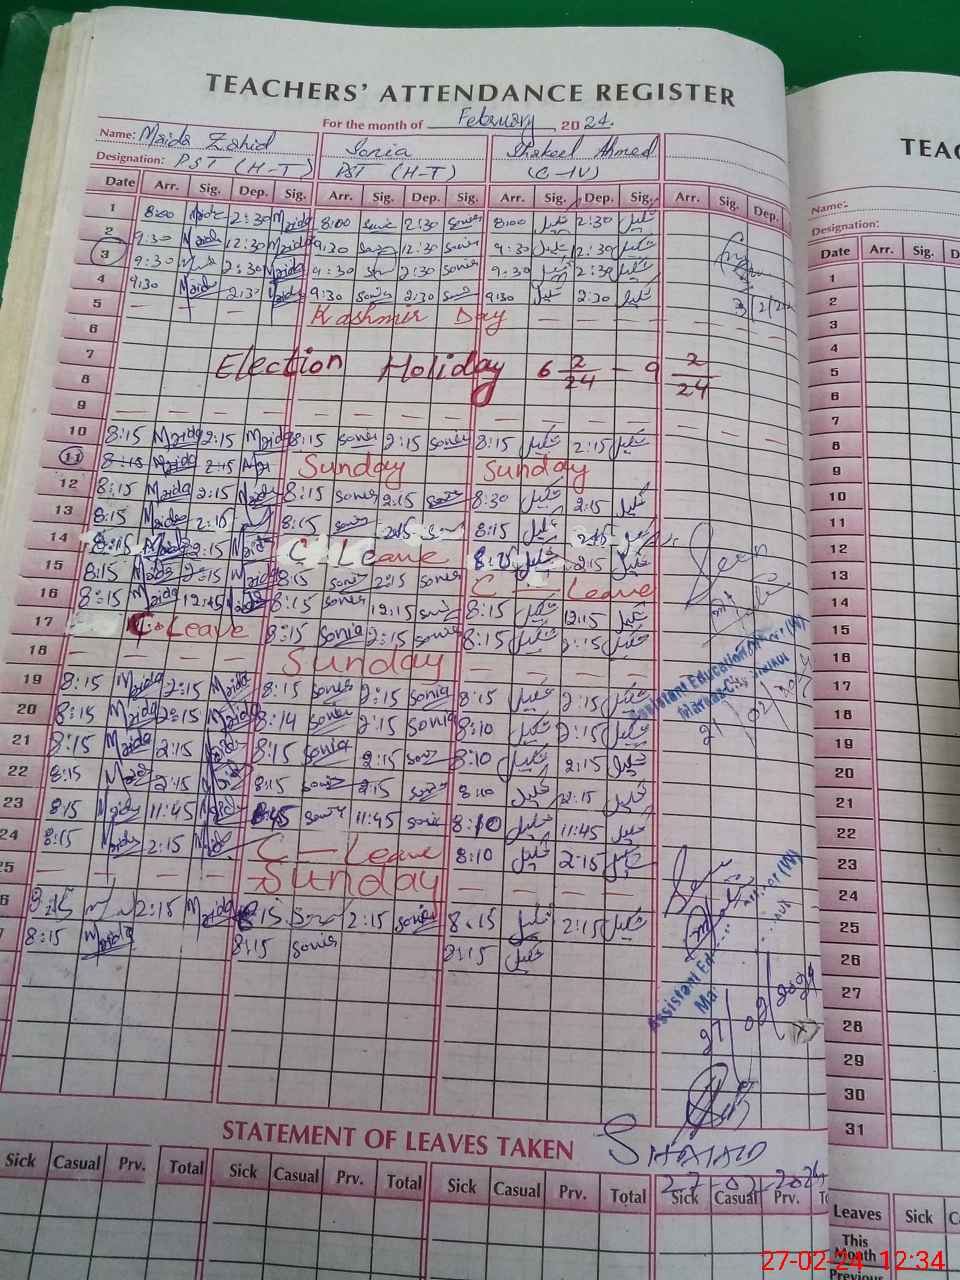 TEACHERS' ATTENDANCE REGISTER
For the month of February 2024.
Name: Maida Zahid Sonia Shakeel Ahmed
Designation: PST (H-T) PST (H-T) (C-IV)
Date Arr. Sig. Dep. Sig. Arr. Sig. Dep. Sig. Arr. Sig. Dep. Sig. Arr. Sig. Dep.
1 8:00 Maida 2:30 Maida 8:00 Sonia 2:30 Sonia 8:00 شکیل 2:30 شکیل
2 9:30 Maida 12:30 Maida 9:30 Sonia 12:30 Sonia 9:30 شکیل 12:30 شکیل
3 9:30 2:30 Maida 9:30 Son 2:30 Sonia 9:30 شکیل 2:30 شکیل
4 9:30 Maida 2:30 Maida 9:30 Sonia 2:30 Sonia 9:30 شکیل 2:30 شکیل
5 Kashmir Day
6
7 Election Holiday 6 2/24 - 9 2/24
8
9
10 8:15 Maida 2:15 Maida 8:15 Sonia 2:15 Sonia 8:15 شکیل 2:15 شکیل
11 8:15 Maida 2:15 Sunday Sunday
12 8:15 Maida 2:15 Maida 8:15 Sonia 2:15 Sonia 8:30 شکیل 2:15 شکیل
13 8:15 Maida 2:15 8:15 Sonia 2:15 8:15 شکیل 2:15 شکیل
14 8:15 Maida 2:15 Maida C Leave 8:15 شکیل 2:15 شکیل
15 8:15 Maida 2:15 Maida 8:15 Sonia 2:15 Sonia C - Leave
16 8:15 Maida 12:45 Maida 8:15 Sonia 12:15 Sonia 8:15 شکیل 12:15 شکیل
17 C. Leave 8:15 Sonia 2:15 Sonia 8:15 شکیل 2:15 شکیل
18 Sunday
19 8:15 Maida 2:15 Maida 8:15 Sonia 2:15 Sonia 8:15 شکیل 2:15 شکیل
20 8:15 Maida 2:15 Maida 8:14 Sonia 2:15 Sonia 8:10 شکیل 2:15 شکیل
21 8:15 Maida 2:15 Maida 8:15 Sonia 2:15 Sonia 8:10 شکیل 2:15 شکیل
22 8:15 Maida 2:15 Maida 8:15 Sonia 2:15 Sonia 8:10 شکیل 2:15 شکیل
23 8:15 Maida 11:45 Maida 8:45 Sonia 11:45 Sonia 8:10 شکیل 11:45 شکیل
24 8:15 Maida 2:15 Maida C - Leave 8:10 شکیل 2:15 شکیل
25 Sunday
6 8:15 2:15 Maida 8:15 2:15 Sonia 8:15 شکیل 2:15 شکیل
8:15 Maida 8:15 Sonia 8:15 شکیل
3/2/
Seen
Assistant Education Officer (W)
Markaz City
21/02/
Seen
Assistant Ed
27/02/2024
STATEMENT OF LEAVES TAKEN
SHAHID
27-02-2024
Sick Casual Prv. Total Sick Casual Prv. Total Sick Casual Prv. Total Sick Casual Prv.
TEAC
Name:
Designation:
Date Arr. Sig. D
1
2
3
4
5
6
7
8
9
10
11
12
13
14
15
16
17
18
19
20
21
22
23
24
25
26
27
28
29
30
31
Leaves Sick
This Month
Previous
27-02-24 12:34